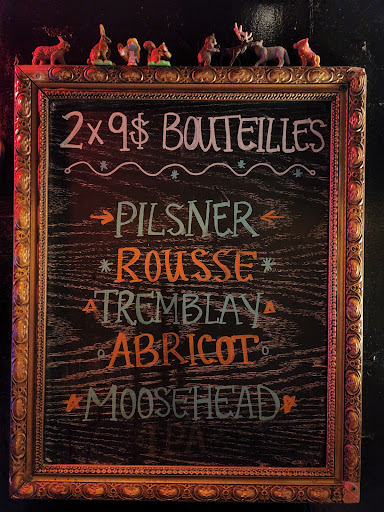 2x9$ BOUTEILLES
PILSNER
ROUSSE
TREMBLAY
ABRICOT
MOOSEHEAD
IPA